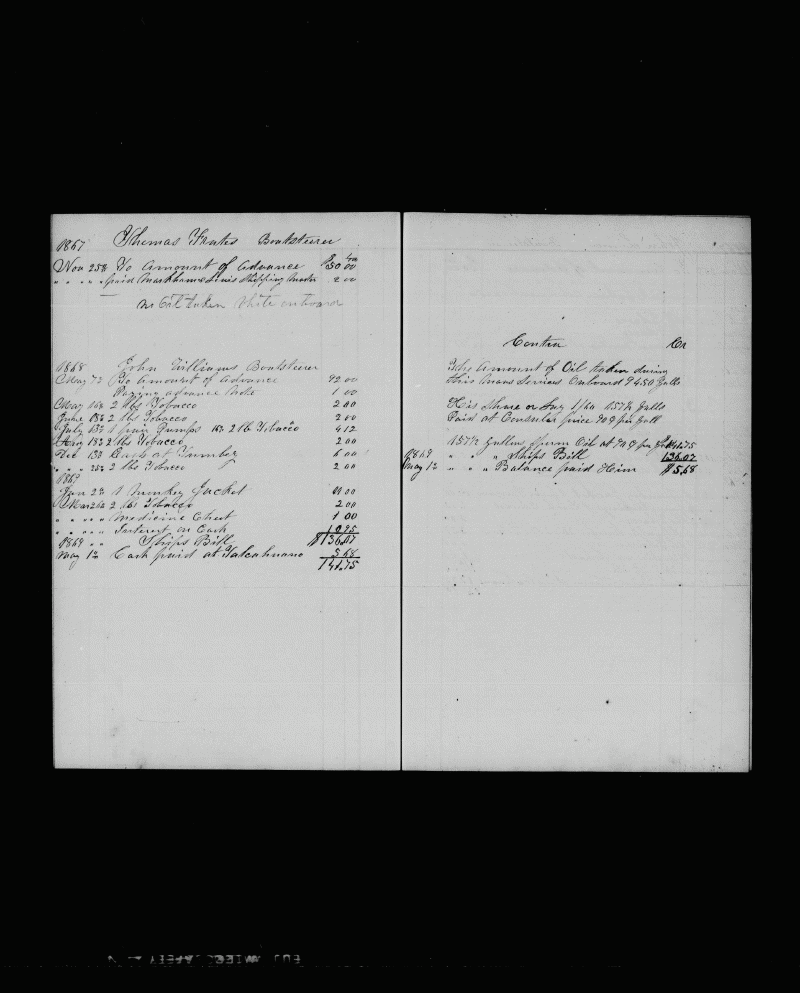 1867 Thomas Frates Boatsteerer
Nov 25th To Amount of Advance $50 00
" " " " paid Markham Lewis Shipping Master 2 00
no Oil taken while onboard
1868 John Williams Boatsteerer
May 7th To Amount of Advance 92 00
Paying advance Note 1 00
May 16th 2 lbs Tobacco 2 00
June 15th 2 lbs Tobacco 2 00
July 13th 1 pair Pumps 2 lb Tobacco 4 12
Aug 18th 2 lbs Tobacco 2 00
Dec 13th Cash at Tumbez 6 00
" " " 25th 2 lbs Tobacco 2 00
1869
Jan 2nd 1 Monkey Jacket 11 00
Mar 26th 2 lbs Tobacco 2 00
" " " " Medicine Chest 1 00
" " " " Interest on Cash 10 95
1869 " " Ships Bill $136.07
May 12 Cash paid at Talcahuano 5 68
141.75
Contra Cr
The Amount of Oil taken during
this Mans Services Onboard 9450 Galls
His Share or Lay 1/60 157½ Galls
Paid at Consular price 90¢ per Gall
157½ Gallons Sperm Oil at 90¢ per Gall 141.75
1869 " " " Ships Bill 136.07
May 12 " " " Balance paid Him $5.68